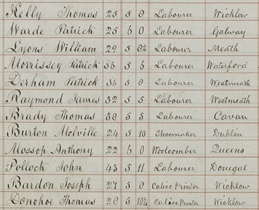 Kelly Thomas 25 5 9 Labourer Wicklow
Warde Patrick 25 6 0 Labourer Galway
Lyons William 29 5 Labourer Meath
Morrissey Patrick 36 5 Labourer Waterford
Derham Patrick 36 5 9 Labourer Westmeath
Raymond James 32 5 5 Labourer Westmeath
Brady Thomas 38 5 5 Labourer Cavan
Burton Melville 24 5 10 Shoemaker Dublin
Mossop Anthony 22 6 0 Woolcomber Queens
Pollock John 43 5 11 Labourer Donegal
Bardon Joseph 27 5 9 Calico Printer Wicklow
Donohoe Thomas 28 5 10½ Calico Printer Wicklow